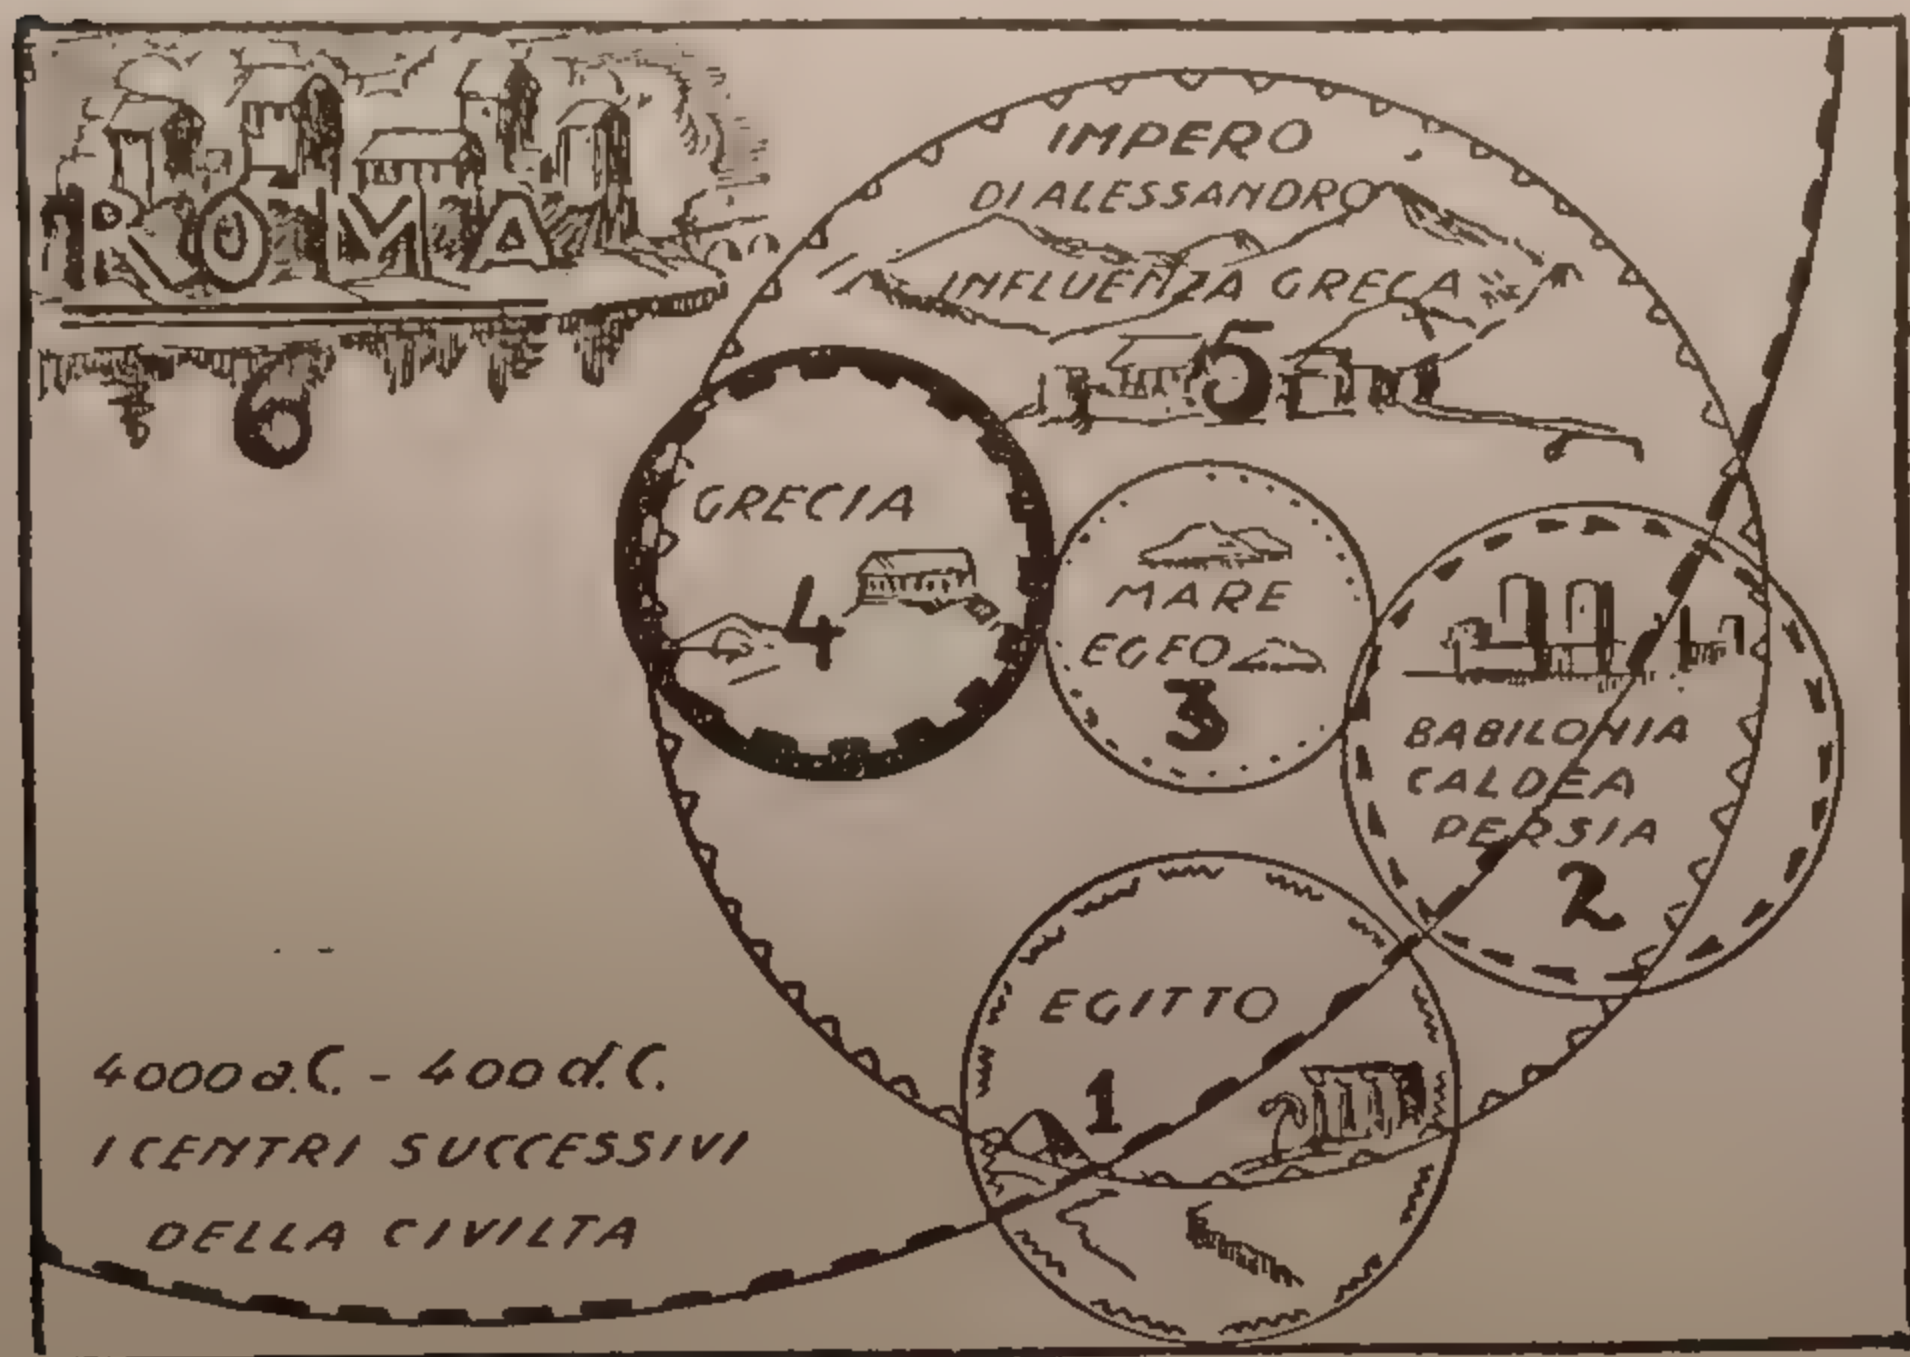 ROMA
6
IMPERO
DI ALESSANDRO
INFLUENZA GRECA
5
GRECIA
4
MARE
EGEO
3
BABILONIA
CALDEA
PERSIA
2
EGITTO
1
4000 a.C. - 400 d.C.
I CENTRI SUCCESSIVI
DELLA CIVILTA